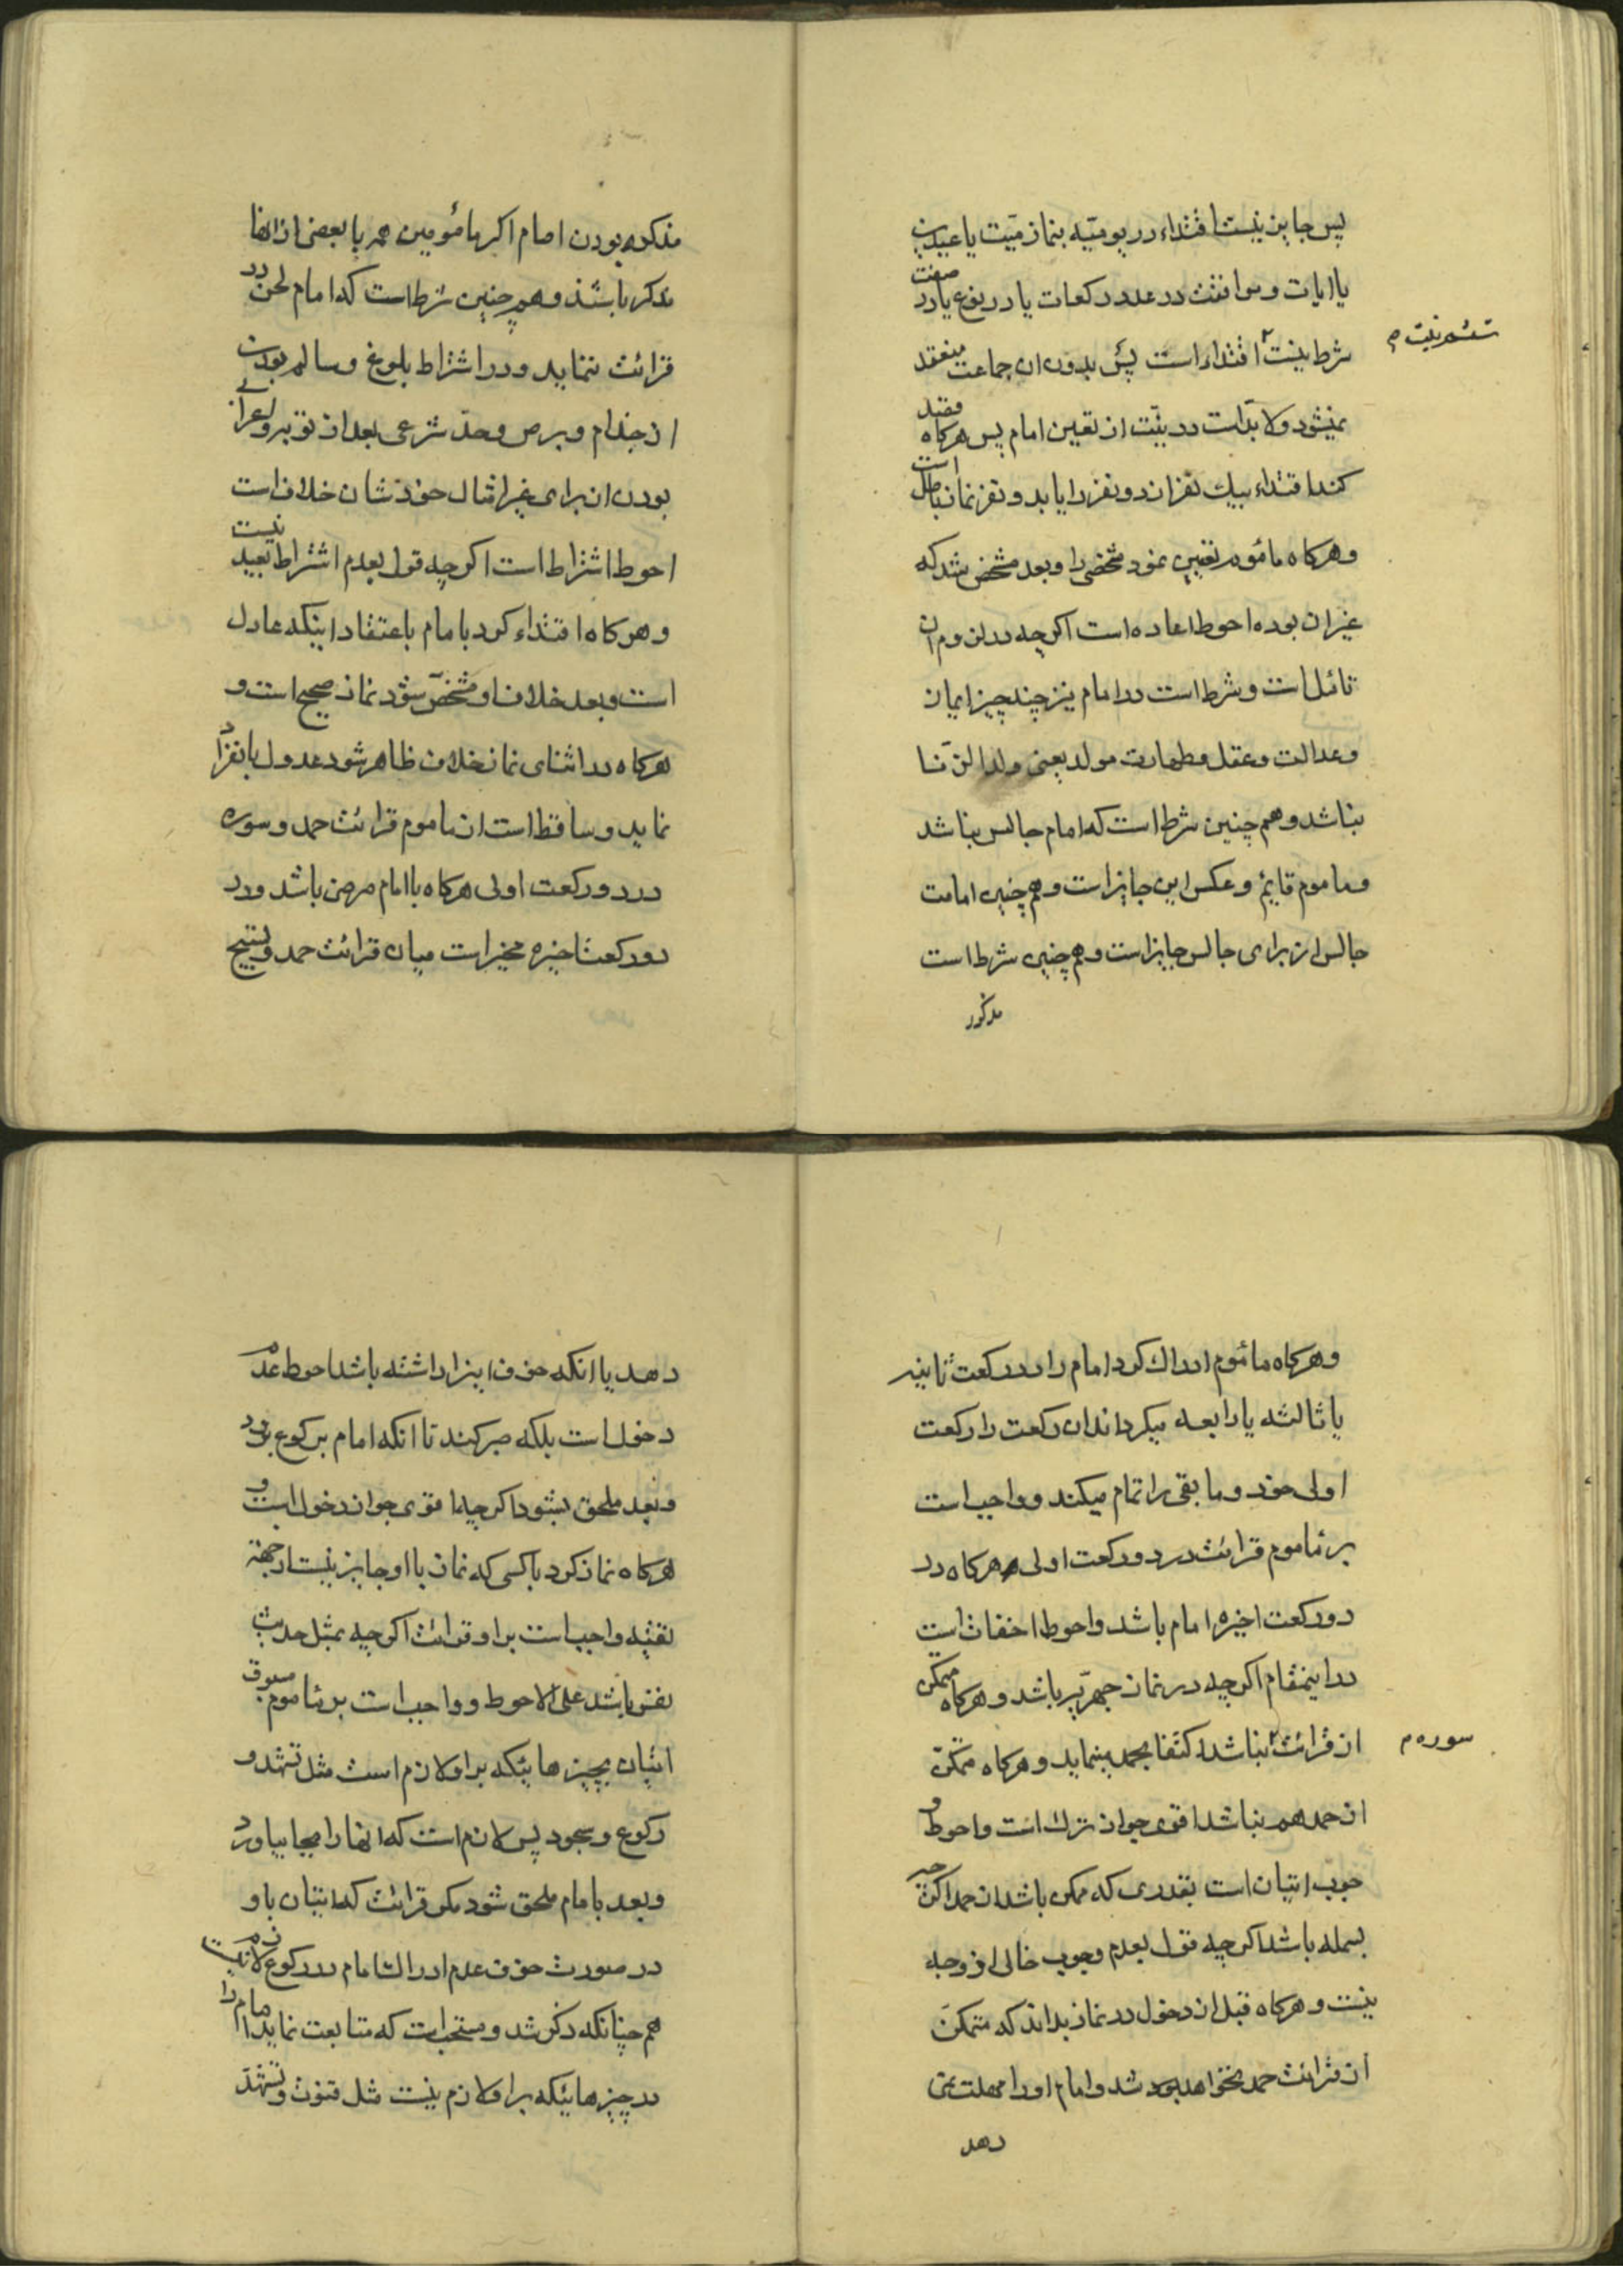 پس جایز نیست اقتداء در یومیّه بنماز میّت یا عیدین
یا ایات و موافقت در عدد رکعات یا در نوع یا در صفت
ششم نیت م
شرط نیست اقتداء است پس بدون ان جماعت منعقد
نمیشود ولا بدّ است در نیّت از تعیین امام پس هرکاه قصد
کند اقتداء بیك نفر از دو نفر را یا بدو نفر نماز باطل است
وهرکاه مامُوم تعیین نمود شخصی را وبعد مشخص شد که
غیر ان بوده احوط اعاده است اکرچه در لزوم ان
تامّل است وشرط است در امام نیز چند چیز ایمان
وعدالت وعقل وطهارت مولد یعنی ولد الزّنا
نباشد وهم چنین شرط است که امام جالس نباشد
وماموم قایم وعکس این جایز است وهم چنین امامت
جالس از برای جالس جایز است وهم چنین شرط است
مذکور
مذکر بودن امام اکر مامُومین همه یا بعضی از انها
مذکر باشند وهم چنین شرط است که امام لحن در
قرائت ننماید ودر اشتراط بلوغ وسالم بودن
از جذام وبرص وحدّ شرعی بعد از توبه واعرابی
بودن از برای غیر امثال خودشان خلاف است
احوط اشتراط است اکرچه قول بعدم اشتراط بعید نیست
وهرکاه اقتداء کرد بامام باعتقاد اینکه عادل
است وبعد خلاف او مشخصّ شود نماز صحیح است و
هرکاه در اثنای نماز خلاف ظاهر شود عدول بانفراد
نماید وساقط است از ماموم قرائت حمد وسوره
در دو رکعت اولی هرکاه با امام مرضی باشد ودر
دو رکعت اخیره مخیر است میان قرائت حمد وتسبیح
وهرکاه مامُوم ادراك کرد امام را در رکعت ثانیه
یا ثالثه یا رابعه میکرداند ان رکعت را رکعت
اولی خود وما بقی را تمام میکند وواجب است
بر ماموم قرائت در دو رکعت اولی هرکاه در
دو رکعت اخیره امام باشد واحوط اخفات است
در اینمقام اکرچه در نماز جهریّه باشد وهرکاه ممکن
سوره م
از قرائت نباشد اکتفا بحمد مینماید وهرکاه متمکّن
از حمد هم نباشد اقوی جواز ترك است واحوط و
جوب اتیان است بقدری که ممکن باشد از حمد اکرچه
بسمله باشد اکرچه قول بعدم وجوب خالی از وجه
نیست وهرکاه قبل از دخول در نماز بداند که متمکّن
از قرائت حمد نخواهد بود شد وامام او را مهلت نمی
دهد
دهد یا انکه خوف اینرا داشته باشد احوط عدم
دخول است بلکه صبر کند تا انکه امام برکوع برود
وبعد ملحق بشود اکرچه اقوی جواز دخول است و
هرکاه نماز کرد با کسی که نماز با او جایز نیست از جهة
تقیّه واجب است بر او قرائت اکرچه بمثل حدیث
نفس باشد علی الاحوط وواجب است بر ماموم مسبوق
اتیان بچیزهائیکه بر او لازم است مثل تشهد و
رکوع وسجود پس لازم است که انها را بجا بیاورد
وبعد بامام ملحق شود مکر قرائت که اتیان باو
در صورت خوف عدم ادراك امام در رکوع لازم نیست
هم چنانکه ذکر شد ومستحب است که متابعت نماید امام را
در چیزهائیکه بر او لازم نیست مثل قنوت وتشهد